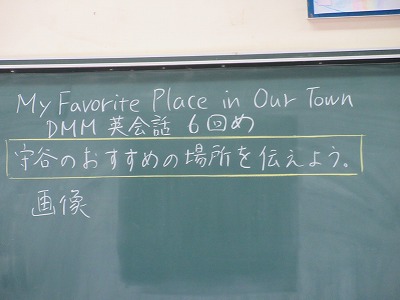 My Favorite Place in Our Town
DMM 英会話 6回め
守谷のおすすめの場所を伝えよう。
画像